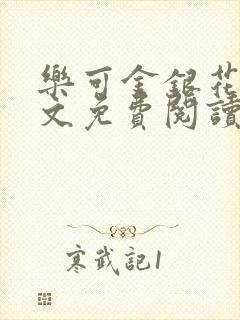 樂可金銀花
文免費閱讀
寒武記1